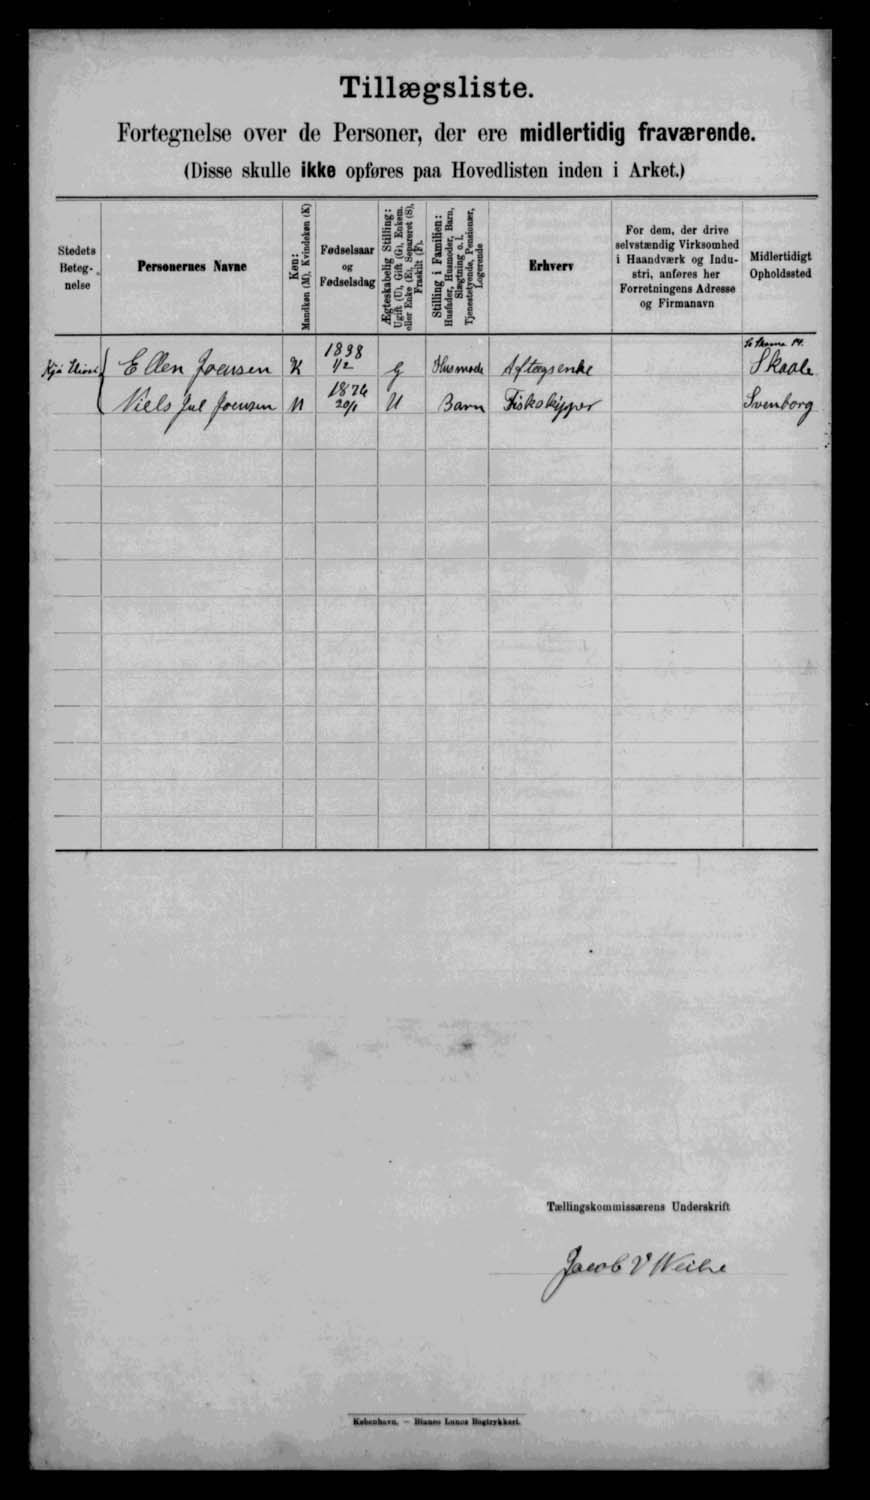 Tillægsliste.
Fortegnelse over de Personer, der ere midlertidig fraværende.
(Disse skulle ikke opføres paa Hovedlisten inden i Arket.)
Stedets
Beteg-
nelse
Personernes Navne
Køn:
Mandkøn (M), Kvindekøn (K)
Fødselsaar
og
Fødselsdag
Ægteskabelig Stilling:
Ugift (U), Gift (G), Enkem.
eller Enke (E), Separeret (S),
Fraskilt (F).
Stilling i Familien:
Husfader, Husmoder, Barn,
Slægtning o. l.
Tjenestetyende, Pensionær,
Logerende
Erhverv
For dem, der drive
selvstændig Virksomhed
i Haandværk og Indu-
stri, anføres her
Forretningens Adresse
og Firmanavn
Midlertidigt
Opholdssted
Ellen Joensen K 1838 1/2 G Husmode Aftægsenke Skaale
Niels Jul Joensen M 1876 20/1 U Barn Fiskskipper Svenborg
Tællingskommissærens Underskrift
Jacob V Weihe
København. — Bianco Lunos Bogtrykkeri.